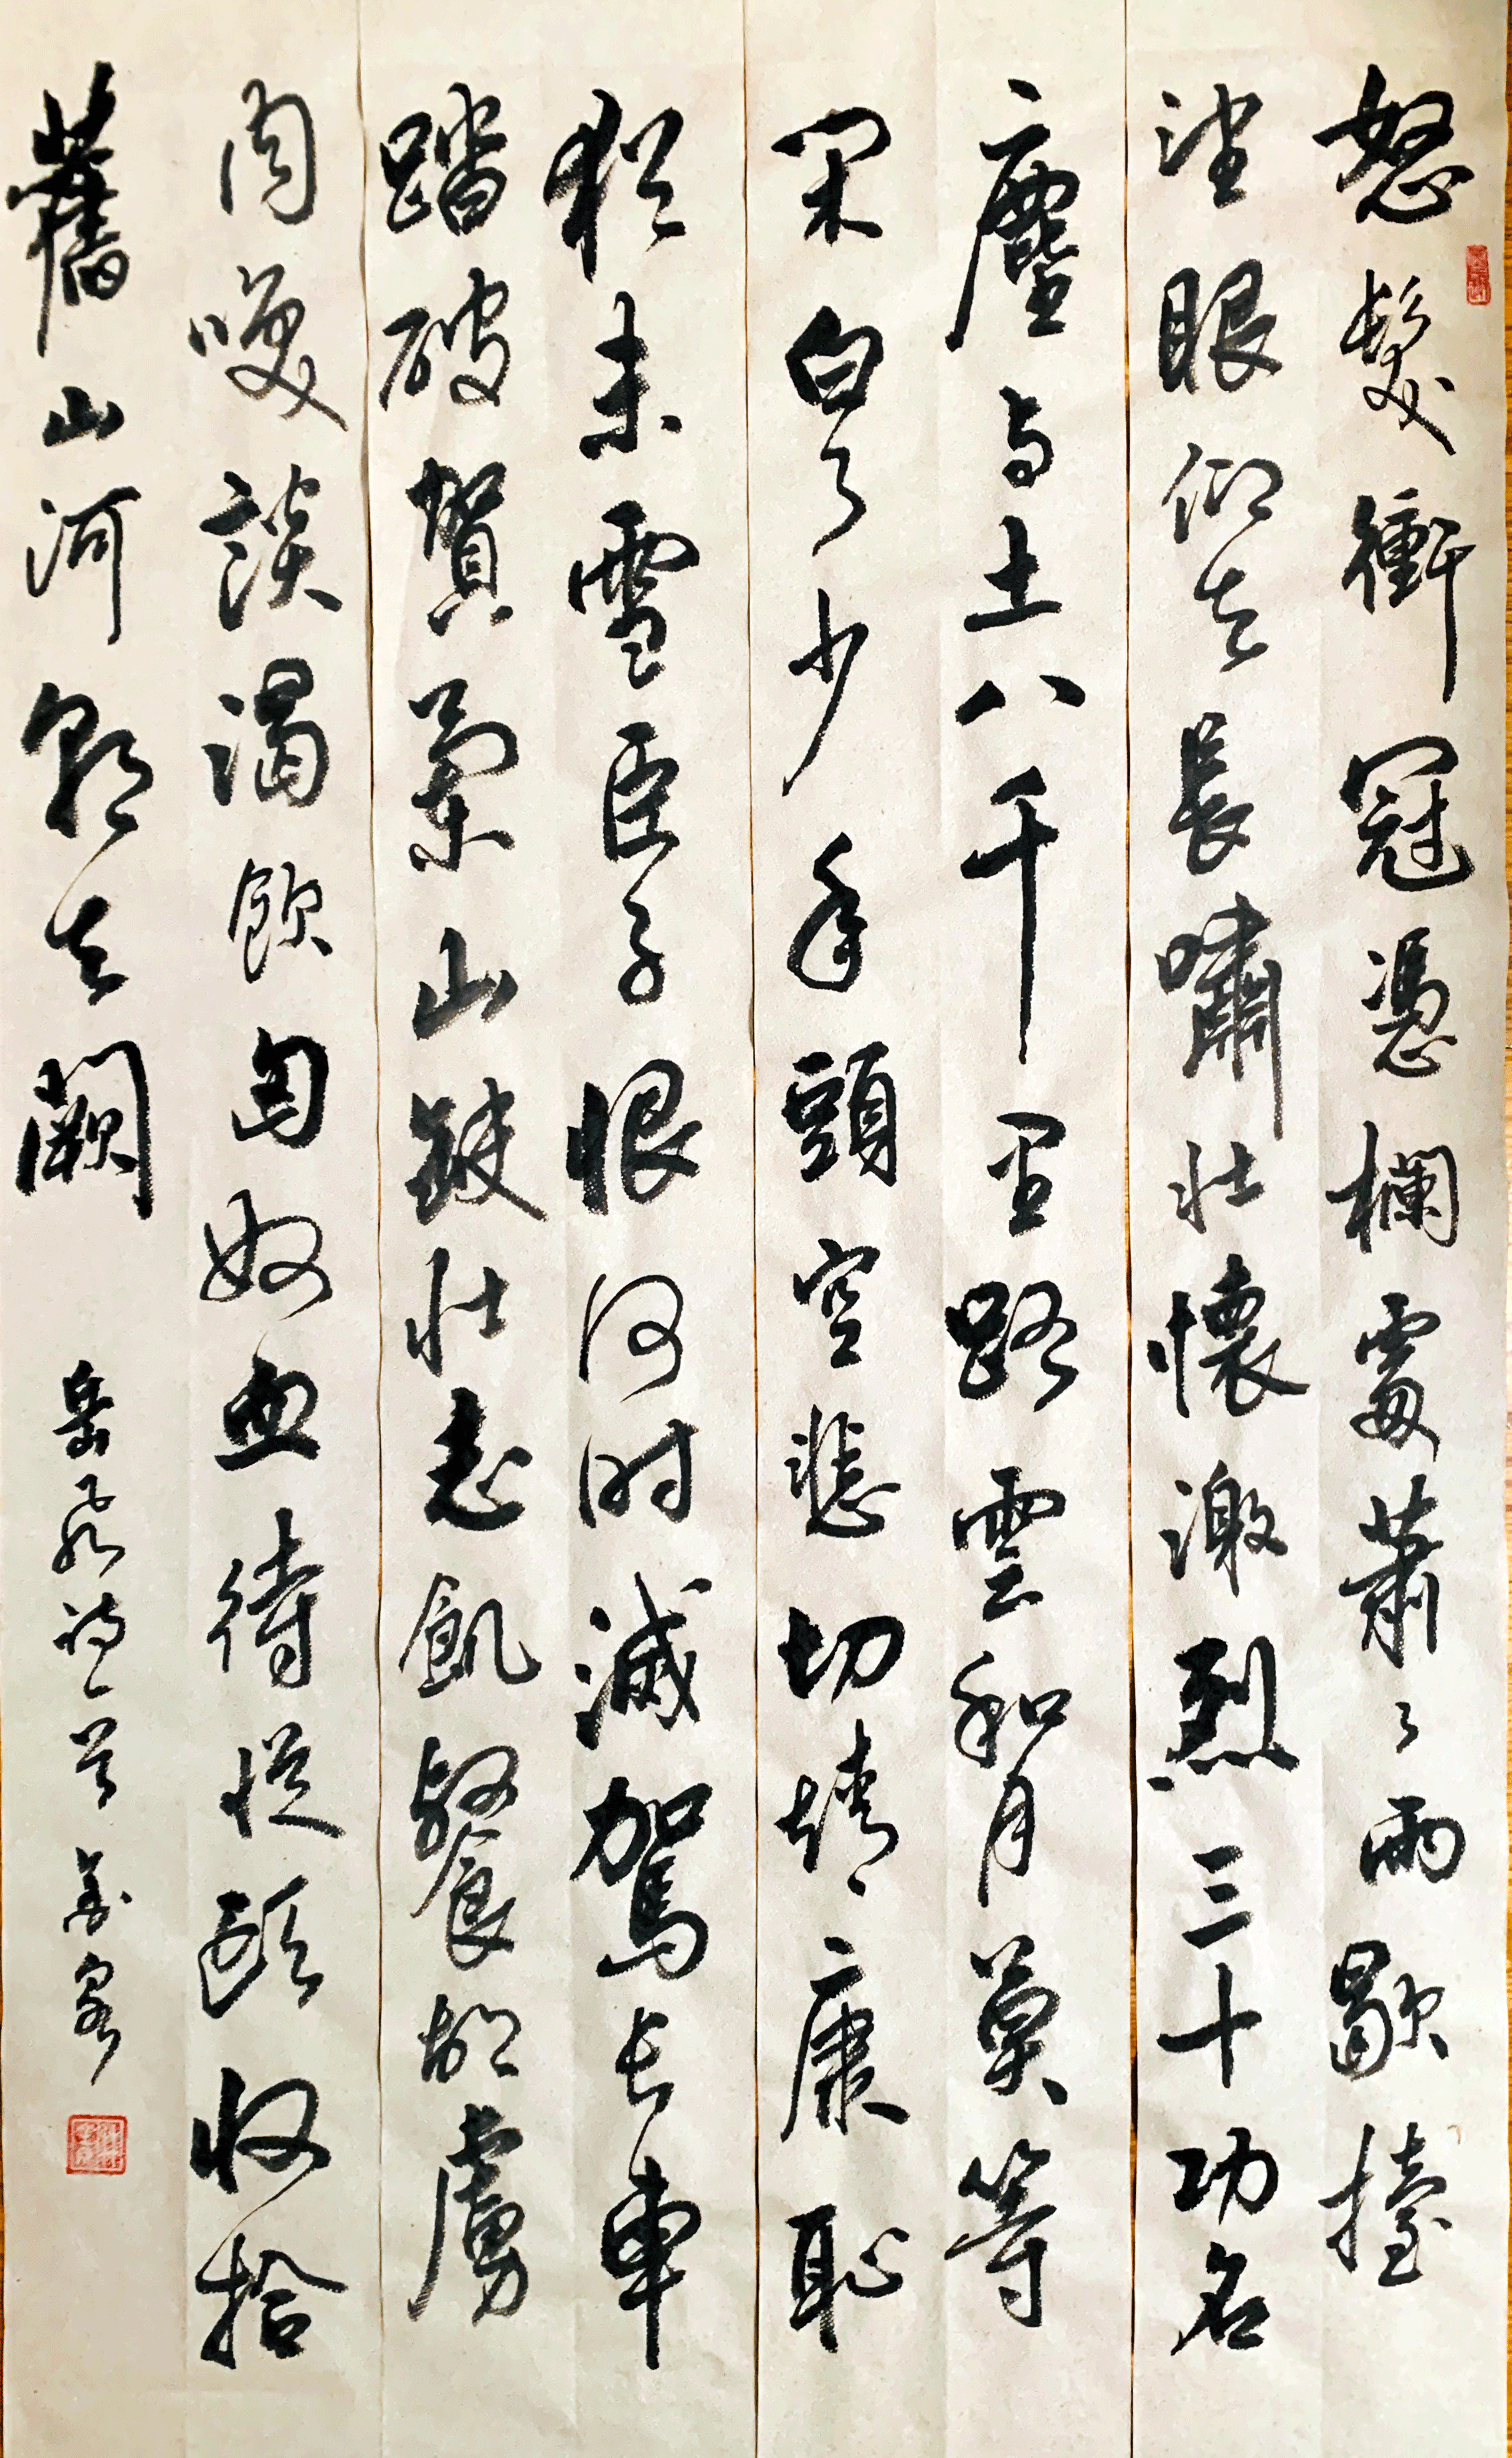 怒髮衝冠憑欄處蕭々雨歇擡
望眼仰天長嘯壯懷激烈三十功名
塵与土八千里路雲和月莫等
閑白了少年頭空悲切靖康恥
猶未雪臣子恨何时滅駕长車
踏破賀蘭山缺壯志飢餐胡虜
肉咲談渴飲匈奴血待從頭收拾
舊山河朝天闕 岳飛詞一首